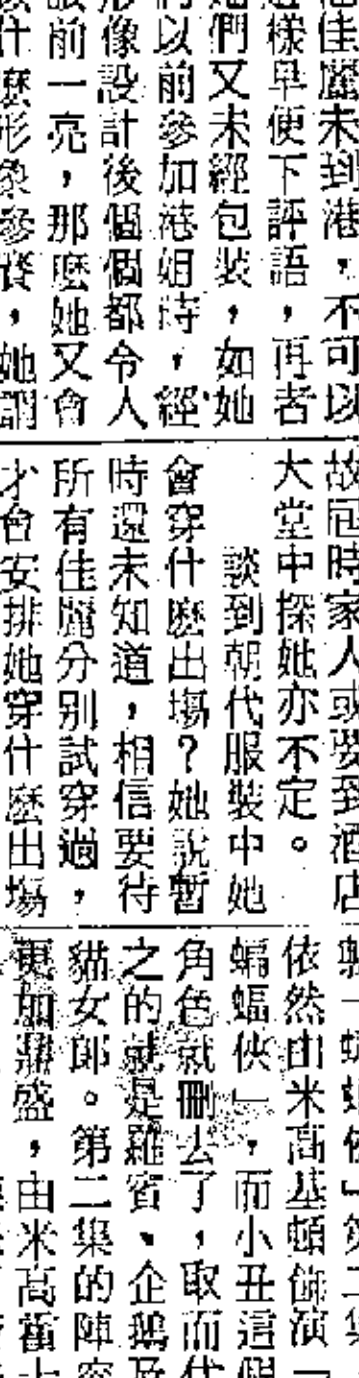 佳麗未到港，不可以
這樣早便下評語，再者
她們又未經包裝，如她
們以前參加港姐時，經
形像設計後個個都令人
眼前一亮，那麼她又會
什麼形象參賽，她謂
故屆時家人或要到酒店
大堂中探她亦不定。
談到朝代服裝中她
會穿什麼出場？她說暫
時還未知道，相信要待
所有佳麗分別試穿過，
才會安排她穿什麼出場
依然由米高基頓飾演「
蝙蝠俠」，而小丑這個
角色就刪去了，取而代
之的就是羅賓、企鵝及
貓女郎。第二集的陣容
更加鼎盛，由米高霍